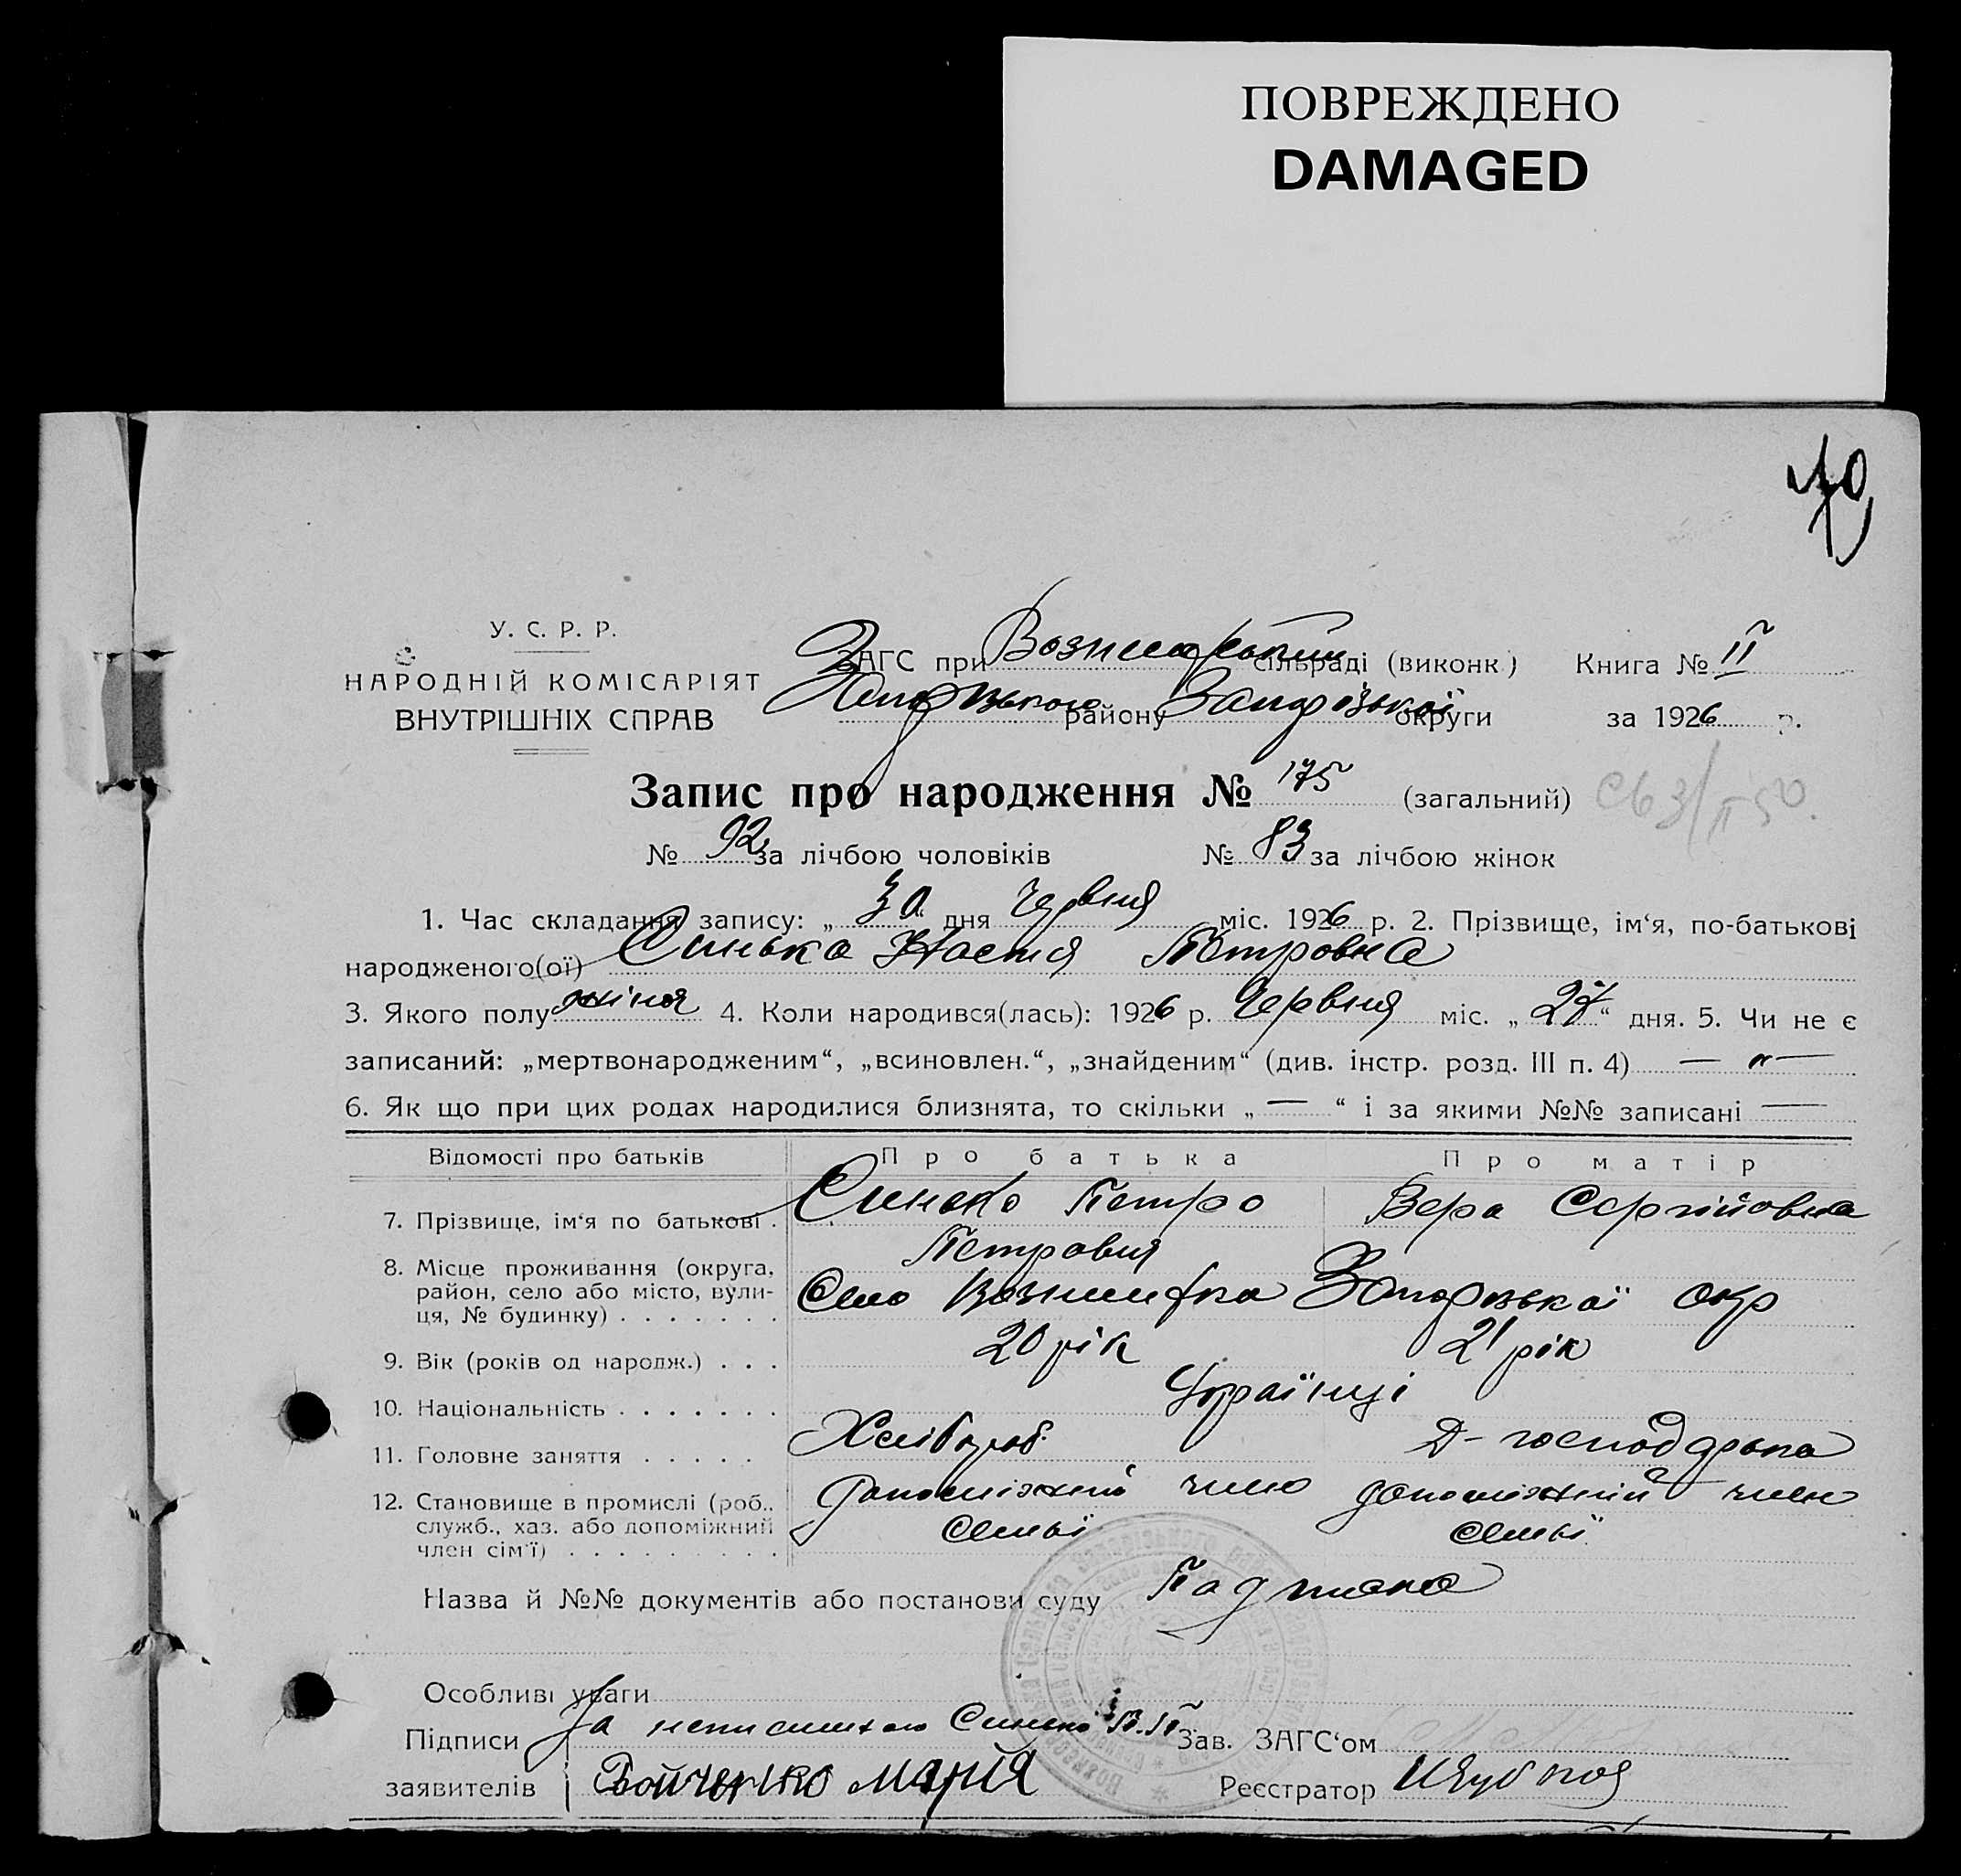 ПОВРЕЖДЕНО
DAMAGED
70
У. С. Р. Р.
НАРОДНІЙ КОМІСАРІЯТ
ВНУТРІШНІХ СПРАВ
ЗАГС при сільраді (виконк.) Книга № ІІ
району Запорізької округи за 1926 р.
Запис про народження № 175 (загальний)
№ 92 за лічбою чоловіків № 83 за лічбою жінок
1. Час складання запису: „30“ дня Червня міс. 1926 р. 2. Прізвище, ім‘я, по-батькові
народженого(ої) Синько Настя Петровна
3. Якого полу жіноя 4. Коли народився(лась): 1926 р. Червня міс. „27“ дня. 5. Чи не є
записаний: „мертвонародженим“, „всиновлен.“, „знайденим“ (див. інстр. розд. III п. 4) — „ —
6. Як що при цих родах народилися близнята, то скільки „ — “ і за якими №№ записані —
Відомості про батьків Про батька Про матір
7. Прізвище, ім‘я по батькові . Синько Петро Вера Сергійовна
Петровия
8. Місце проживання (округа,
район, село або місто, вули-
ця, № будинку) . . . . . . . Село Запорізької окр
9. Вік (років од народж.) . . . 20 рік 21 рік
10. Національність . . . . . . . Українці
11. Головне заняття . . . . . Хлібороб. Д-господарька
12. Становище в промислі (роб.,
служб., хаз. або допоміжний
член сім‘ї) . . . . . . . . . допоміжний член семьї допоміжний член семьї
Назва й №№ документів або постанови суду Подписка
Особливі уваги
Підписи За неписьменою Синько В.П. Зав. ЗАГС‘ом
заявителів Бойченко Марія Реєстратор